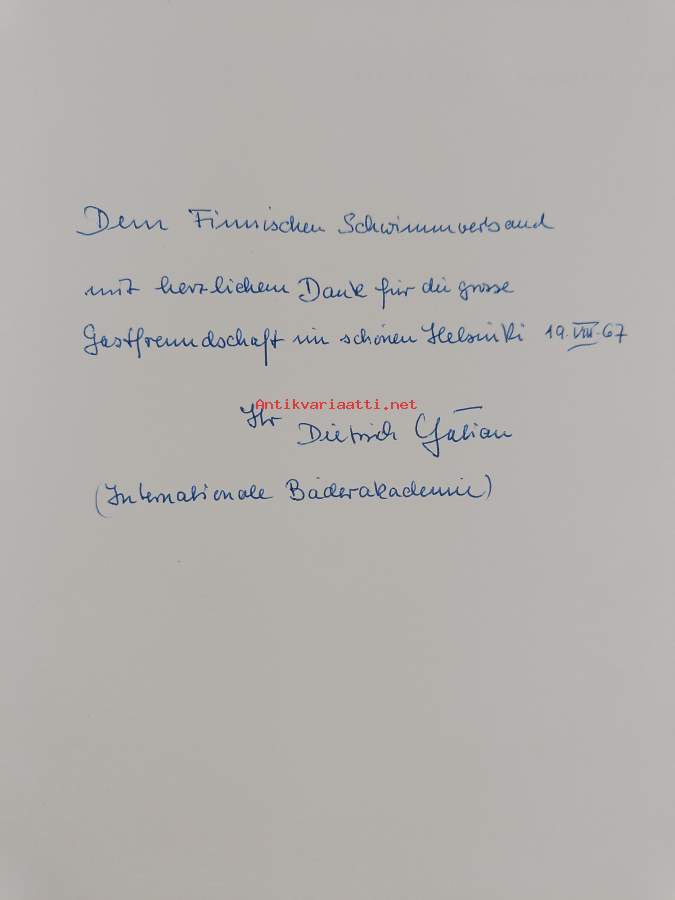 Dem Finnischen Schwimmverband
mit herzlichem Dank für die grosse
Gastfreundschaft im schönen Helsinki 19.VIII.67
Antikvariaatti.net
Ihr Dietrich
(Internationale Bäderakademie)